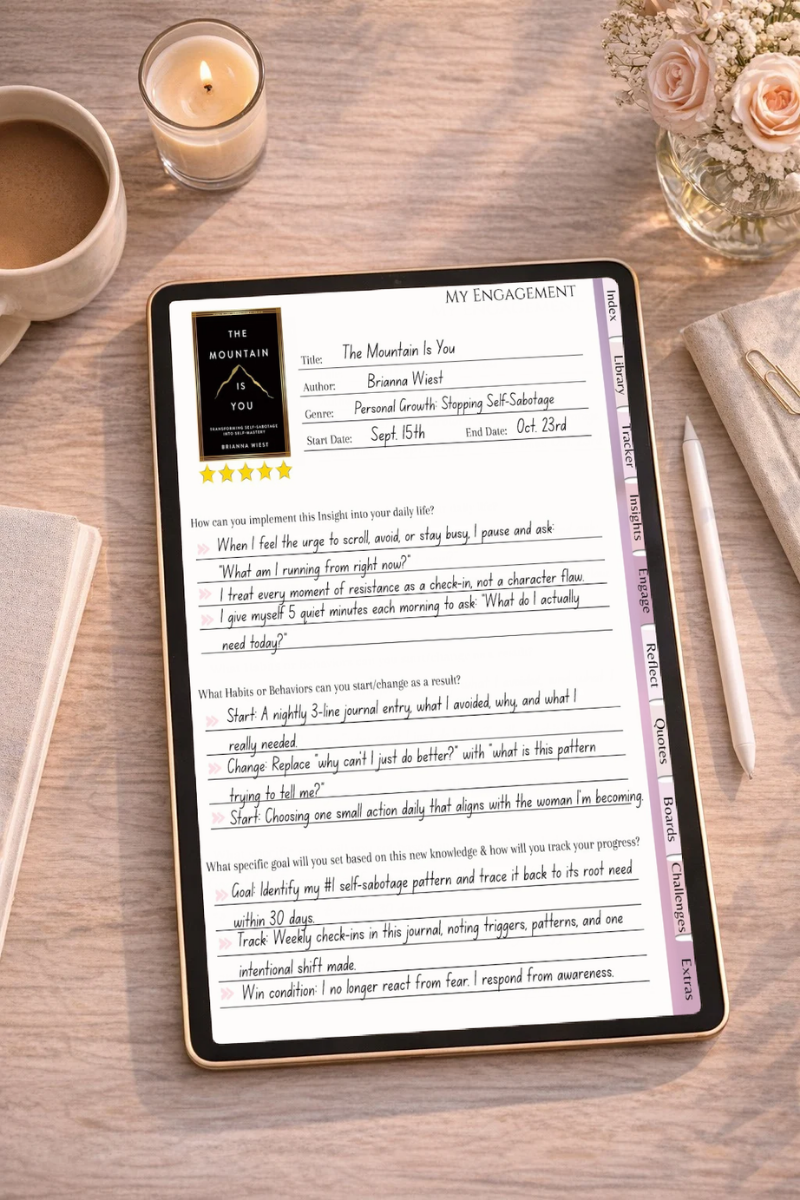 My Engagement
THE
MOUNTAIN
IS
YOU
TRANSFORMING SELF-SABOTAGE
INTO SELF-MASTERY
BRIANNA WIEST
Title: The Mountain Is You
Author: Brianna Wiest
Genre: Personal Growth: Stopping Self-Sabotage
Start Date: Sept. 15th End Date: Oct. 23rd
How can you implement this Insight into your daily life?
When I feel the urge to scroll, avoid, or stay busy, I pause and ask:
"What am I running from right now?"
I treat every moment of resistance as a check-in, not a character flaw.
I give myself 5 quiet minutes each morning to ask: "What do I actually
need today?"
What Habits or Behaviors can you start/change as a result?
Start: A nightly 3-line journal entry, what I avoided, why, and what I
really needed.
Change: Replace "why can't I just do better?" with "what is this pattern
trying to tell me?"
Start: Choosing one small action daily that aligns with the woman I'm becoming.
What specific goal will you set based on this new knowledge & how will you track your progress?
Goal: Identify my #1 self-sabotage pattern and trace it back to its root need
within 30 days.
Track: Weekly check-ins in this journal, noting triggers, patterns, and one
intentional shift made.
Win condition: I no longer react from fear. I respond from awareness.
Index
Library
Tracker
Insights
Engage
Reflect
Quotes
Boards
Challenges
Extras